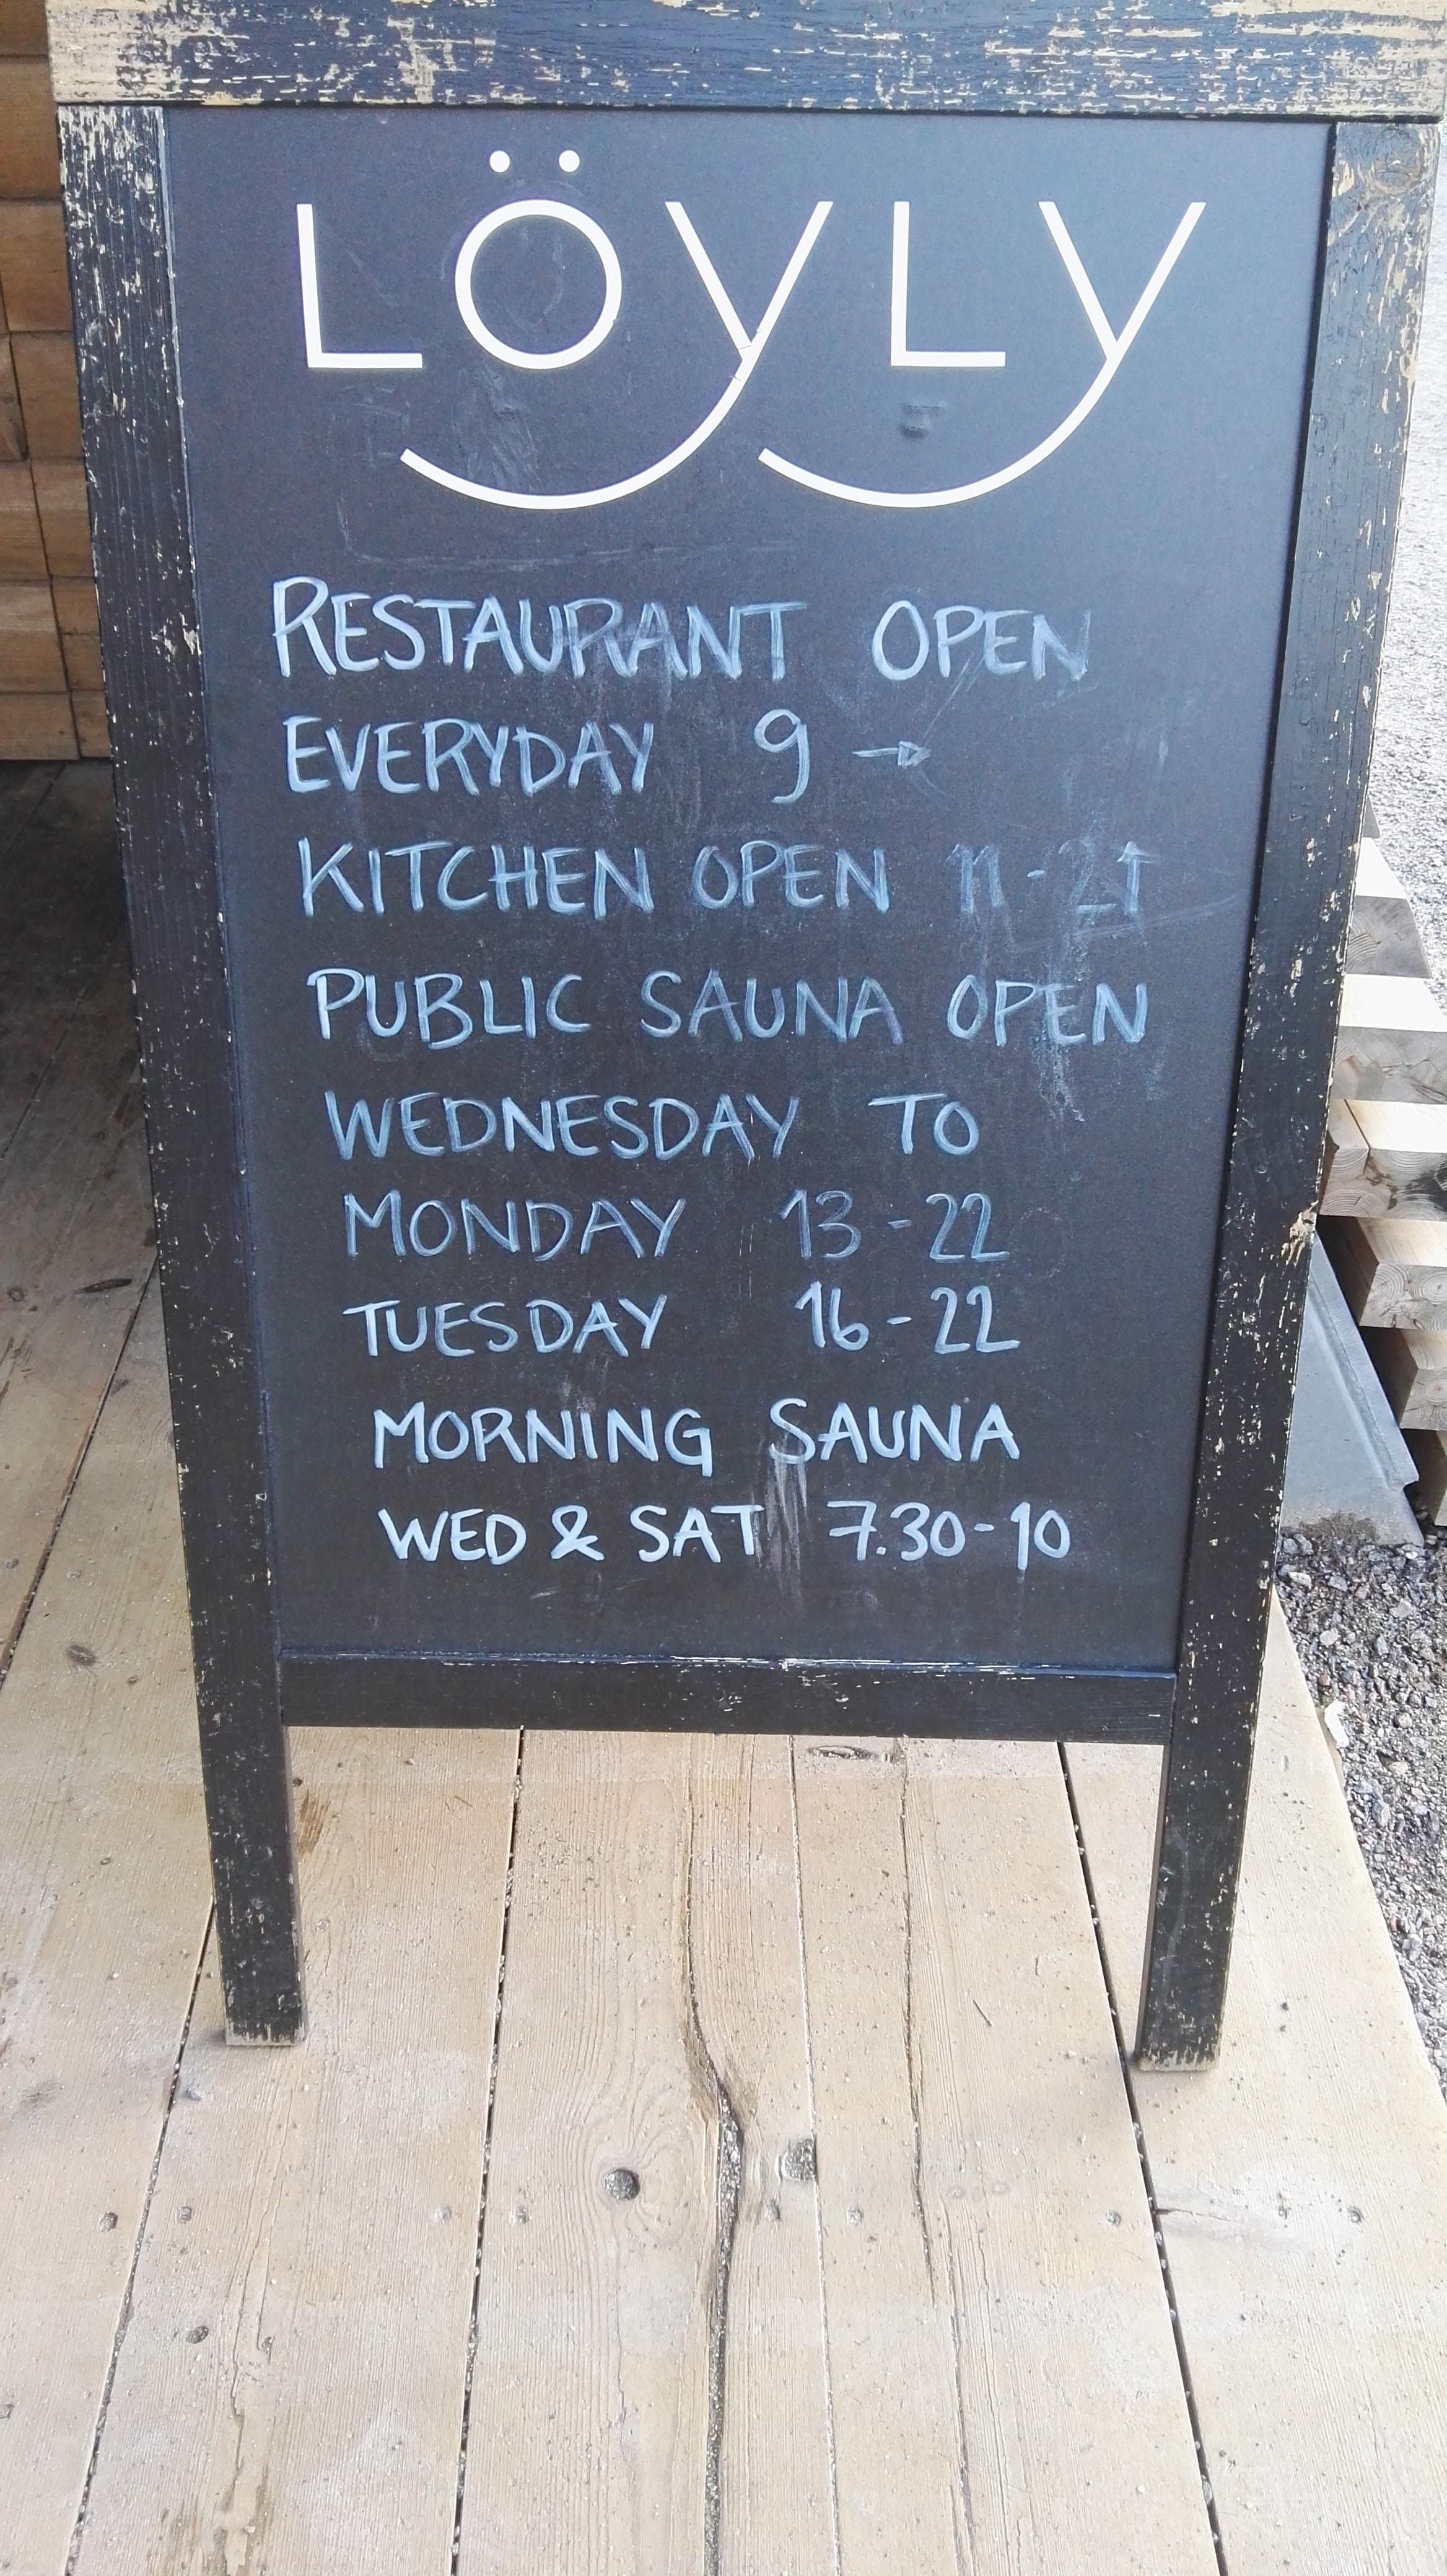 LÖYLY
RESTAURANT OPEN
EVERYDAY 9 →
KITCHEN OPEN 11-21
PUBLIC SAUNA OPEN
WEDNESDAY TO
MONDAY 13-22
TUESDAY 16-22
MORNING SAUNA
WED & SAT 7.30-10